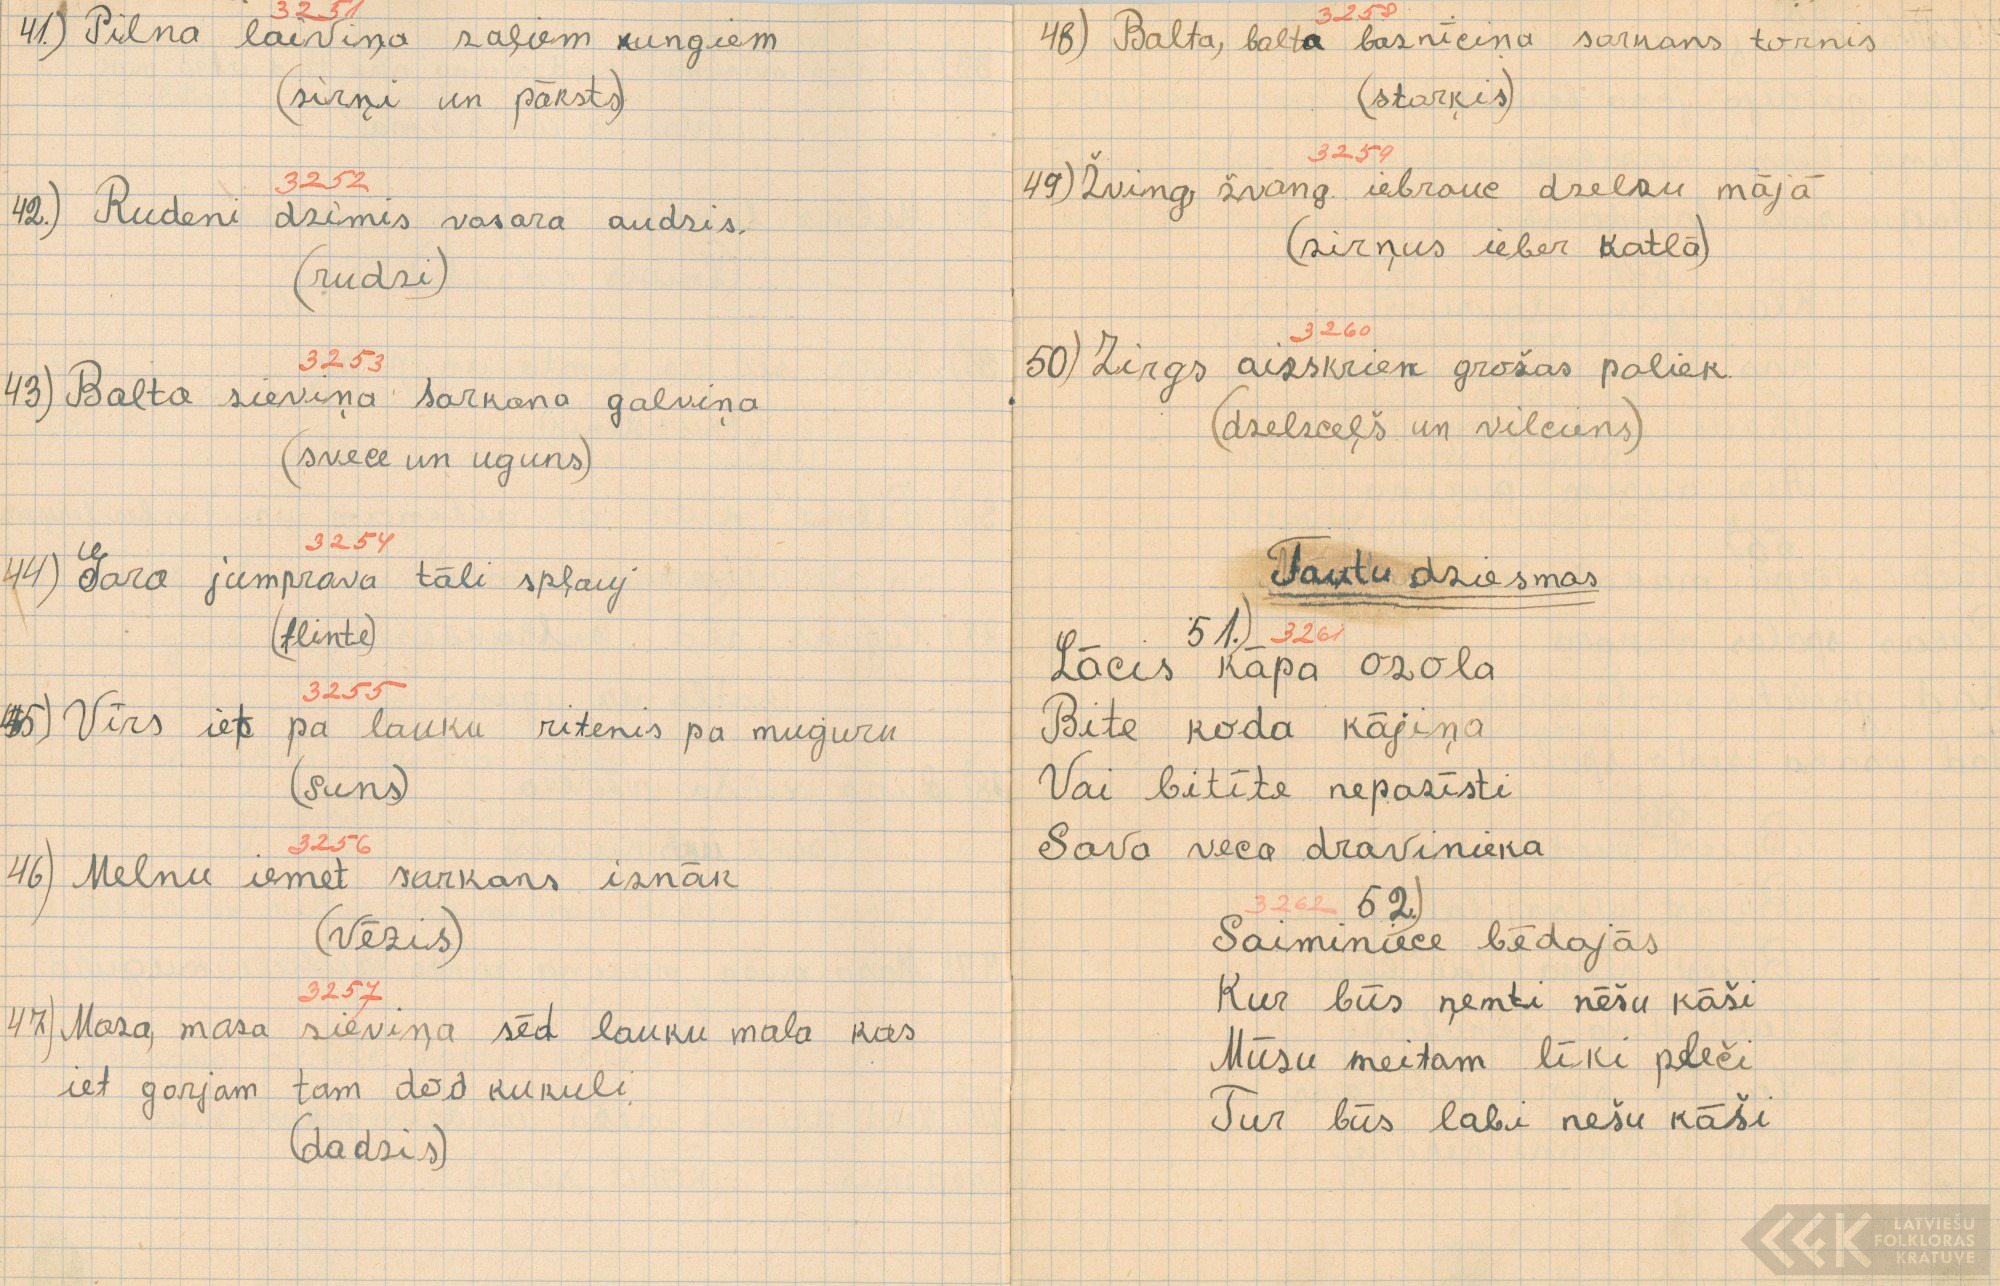 3251
41.) Pilna laiviņa zaļiem kungiem
(zirņi un pāksts)
3252
42.) Rudeni dzimis vasara audzis.
(rudzi)
3253
43) Balta sieviņa sarkana galviņa
(svece un uguns)
3254
44) Gara jumprava tāli spļauj
(flinte)
3255
45) Vīrs iet pa lauku ritenis pa muguru
(suns)
3256
46) Melnu iemet sarkans iznāk
(Vēzis)
3257
47) Maza, maza sieviņa sēd lauku mala kas
iet garjam tam dod kukuli.
(dadzis)
3258
48) Balta, balta baznīciņa sarkans tornis
(starķis)
3259
49) Žving, žvang. iebrauc dzelzu mājā
(zirņus ieber katlā)
3260
50) Zirgs aizskrien grožas paliek.
(dzelzceļš un vilciens)
Tautu dziesmas
51.) 3261
Lācis kāpa ozola
Bite koda kājiņa
Vai bitīte nepazīsti
Sava veca dravinieka
3262 52.)
Saiminiece bēdajās
Kur būs ņemti nēšu kāši
Mūsu meitam līki pleči
Tur būs labi nešu kāši
LATVIEŠU
FOLKLORAS
KRĀTUVE